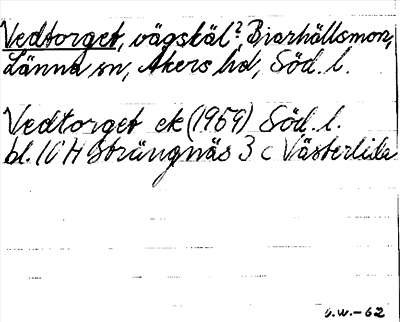 Vedtorget, vägskäl? Biarhällsmon,
Länna sn, Åkers hd, Söd. l.
Vedtorget ek (1959) Söd. l.
bl. 10 H Strängnäs 3 c Västerlida
O.W.-62